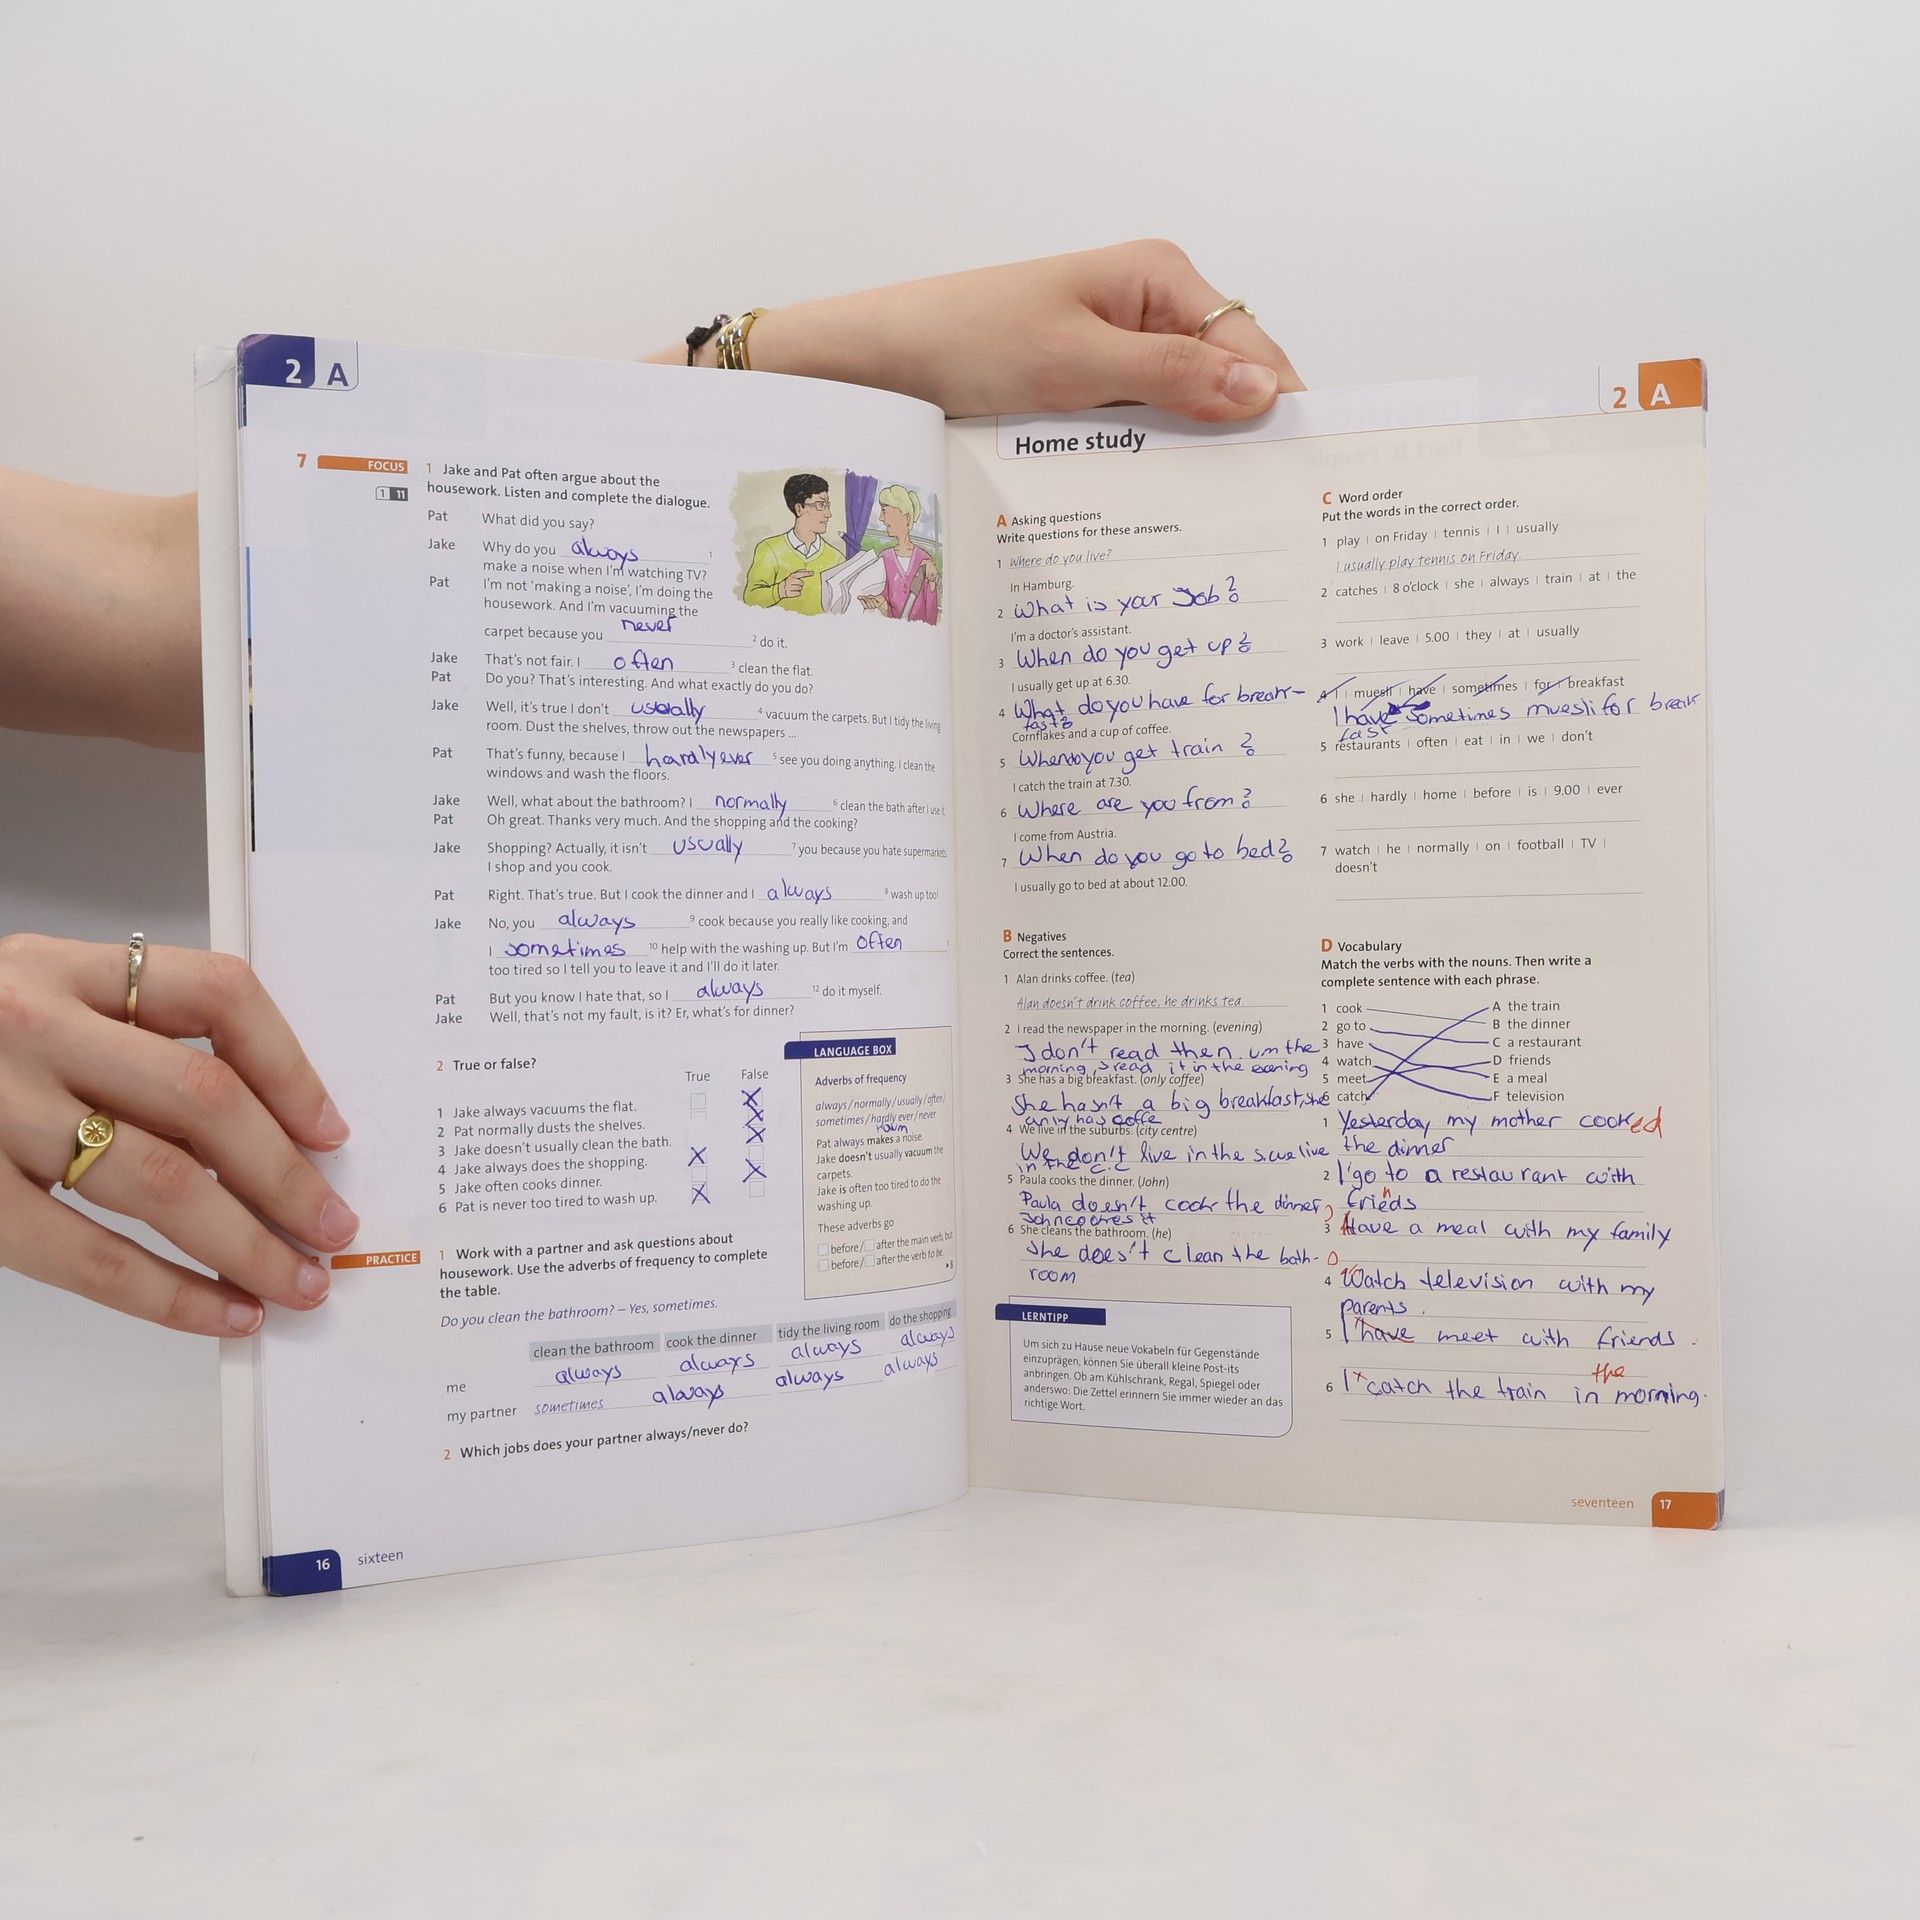 2 A
7 FOCUS
1 11
1 Jake and Pat often argue about the
housework. Listen and complete the dialogue.
Pat What did you say?
Jake Why do you always 1
make a noise when I'm watching TV?
Pat I'm not 'making a noise', I'm doing the
housework. And I'm vacuuming the
carpet because you never 2 do it.
Jake That's not fair. I often 3 clean the flat.
Pat Do you? That's interesting. And what exactly do you do?
Jake Well, it's true I don't usually 4 vacuum the carpets. But I tidy the living
room. Dust the shelves, throw out the newspapers ...
Pat That's funny, because I hardly ever 5 see you doing anything. I clean the
windows and wash the floors.
Jake Well, what about the bathroom? I normally 6 clean the bath after I use it.
Pat Oh great. Thanks very much. And the shopping and the cooking?
Jake Shopping? Actually, it isn't usually 7 you because you hate supermarkets.
I shop and you cook.
Pat Right. That's true. But I cook the dinner and I always 8 wash up too!
Jake No, you always 9 cook because you really like cooking, and
I sometimes 10 help with the washing up. But I'm often
too tired so I tell you to leave it and I'll do it later.
Pat But you know I hate that, so I always 12 do it myself.
Jake Well, that's not my fault, is it? Er, what's for dinner?
2 True or false?
True False
1 Jake always vacuums the flat. X
2 Pat normally dusts the shelves. X
3 Jake doesn't usually clean the bath. X
4 Jake always does the shopping. X
5 Jake often cooks dinner. X
6 Pat is never too tired to wash up. X
LANGUAGE BOX
Adverbs of frequency
always / normally / usually / often /
sometimes / hardly ever / never
Pat always makes a noise.
Jake doesn't usually vacuum the
carpets.
Jake is often too tired to do the
washing up.
These adverbs go
before / after the main verb, but
before / after the verb to be.
8
PRACTICE
1 Work with a partner and ask questions about
housework. Use the adverbs of frequency to complete
the table.
Do you clean the bathroom? – Yes, sometimes.
clean the bathroom cook the dinner tidy the living room do the shopping
me always always always always
my partner sometimes always always always
2 Which jobs does your partner always/never do?
16 sixteen
2 A
Home study
A Asking questions
Write questions for these answers.
1 Where do you live?
In Hamburg.
2 What is your Job?
I'm a doctor's assistant.
3 When do you get up?
I usually get up at 6.30.
4 What do you have for break-
fast?
Cornflakes and a cup of coffee.
5 When do you get train ?
I catch the train at 7.30.
6 Where are you from?
I come from Austria.
7 When do you go to bed?
I usually go to bed at about 12.00.
B Negatives
Correct the sentences.
1 Alan drinks coffee. (tea)
Alan doesn't drink coffee, he drinks tea.
2 I read the newspaper in the morning. (evening)
I don't read the the
morning, I read it in the evening
3 She has a big breakfast. (only coffee)
She hasn't a big breakfast, she
only has coffe
4 We live in the suburbs. (city centre)
We don't live in the s. we live
in the c.c
5 Paula cooks the dinner. (John)
Paula doesn't cook the dinner,
John cookes it
6 She cleans the bathroom. (he)
She does't clean the bath-
room
LERNTIPP
Um sich zu Hause neue Vokabeln für Gegenstände
einzuprägen, können Sie überall kleine Post-its
anbringen. Ob am Kühlschrank, Regal, Spiegel oder
anderswo: Die Zettel erinnern Sie immer wieder an das
richtige Wort.
C Word order
Put the words in the correct order.
1 play | on Friday | tennis | I | usually
I usually play tennis on Friday.
2 catches | 8 o'clock | she | always | train | at | the
3 work | leave | 5.00 | they | at | usually
4 I | muesli | have | sometimes | for | breakfast
I have sometimes muesli for break
fast
5 restaurants | often | eat | in | we | don't
6 she | hardly | home | before | is | 9.00 | ever
7 watch | he | normally | on | football | TV |
doesn't
D Vocabulary
Match the verbs with the nouns. Then write a
complete sentence with each phrase.
1 cook A the train
2 go to B the dinner
3 have C a restaurant
4 watch D friends
5 meet E a meal
6 catch F television
1 Yesterday my mother cooked
the dinner
2 I go to a restaurant with
friends
3 Have a meal with my family
4 Watch television with my
parents.
5 I have meet with friends.
the
6 I catch the train in morning.
seventeen 17